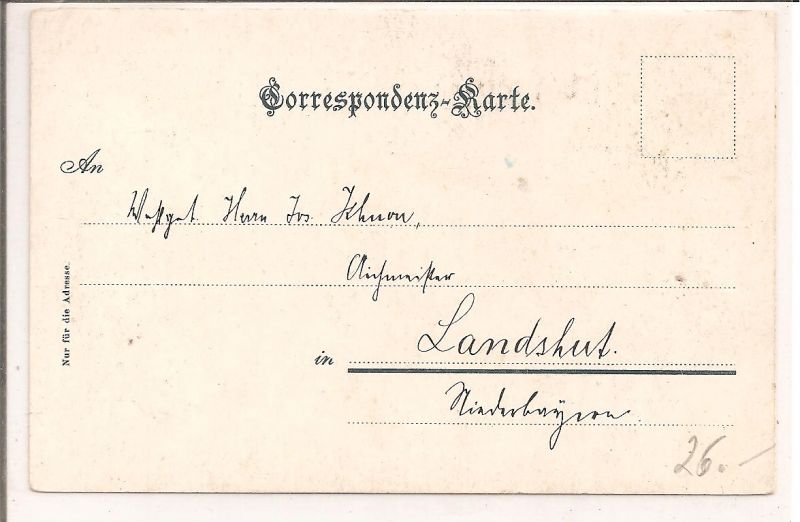 Correspondenz-Karte.
An
Herrn Jos.
Aichmeister
in Landshut.
Niederbayern.
Nur für die Adresse.
26.-